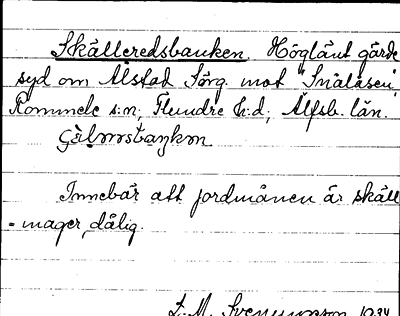 Skälleredsbanken. Höglänt gärde
syd om Alstad Särg. mot "Snålåsen",
Rommele s:n; Flundre h:d; Älfsb. län.
Innebär att jordmånen är skäll
- mager, dålig.
D. M. Svenunsson 1934